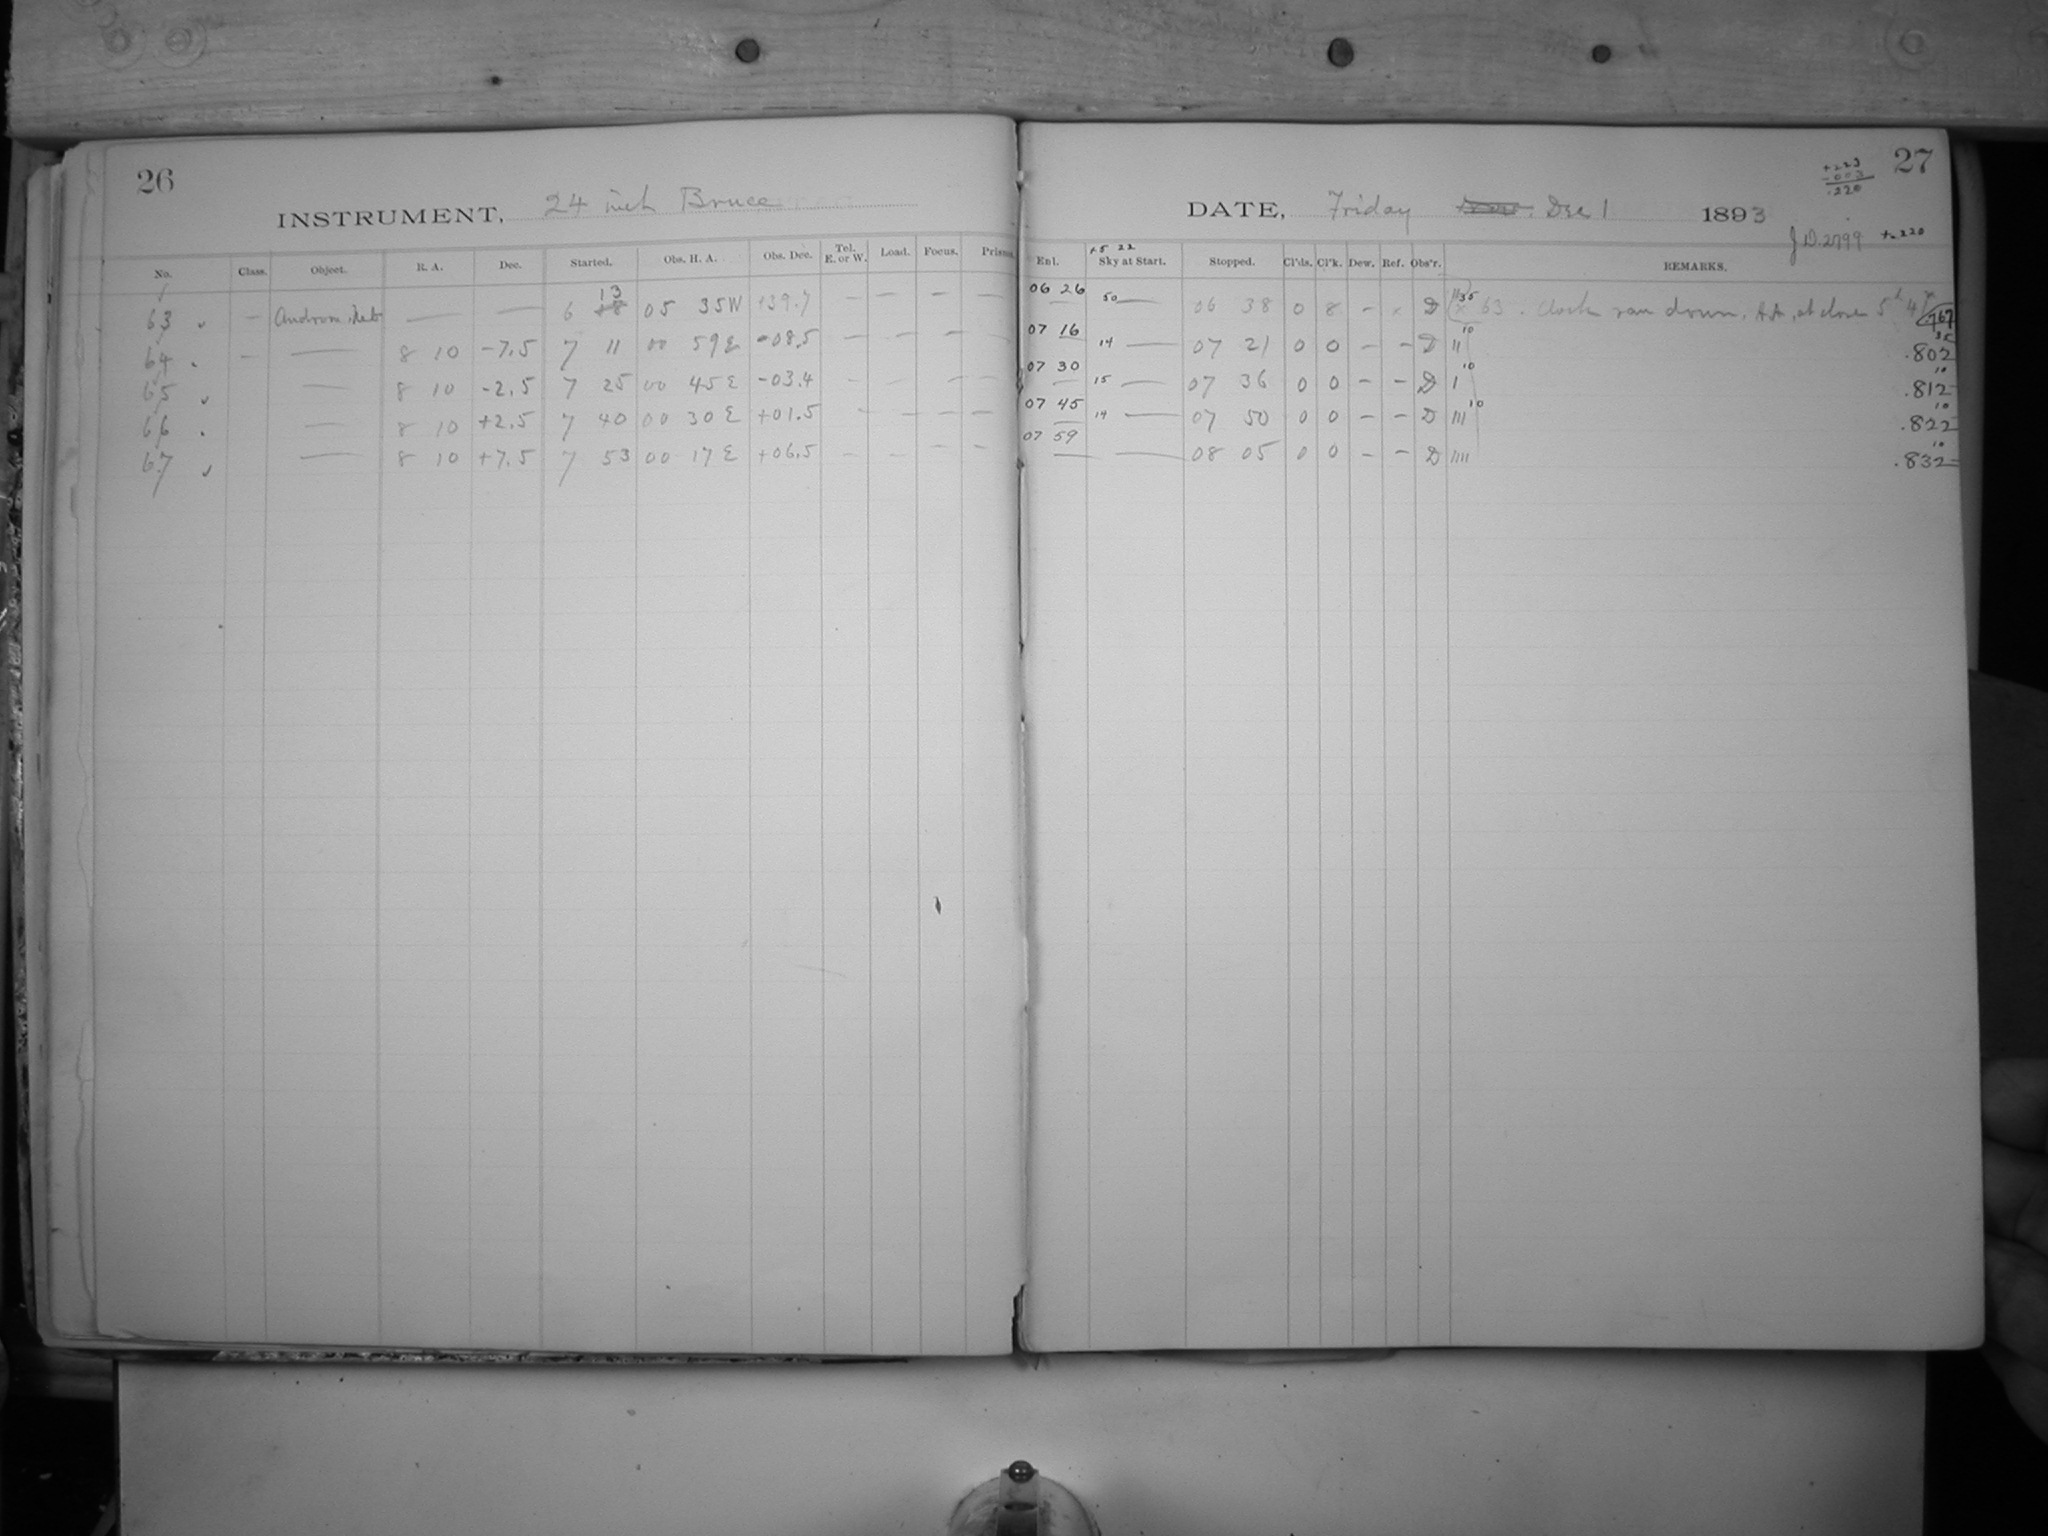 26
INSTRUMENT, 24 inch Bruce
No. Class. Object. R. A. Dec. Started. Obs. H. A. Obs. Dec. Tel. E. or W. Load. Focus. Prism.
63 — Androm. Neb — — 6 13 05 35W +39.7 — — — —
64 — — 8 10 -7.5 7 11 00 59E -08.5 — — — —
65 — 8 10 -2.5 7 25 00 45E -03.4 — — — —
66 — 8 10 +2.5 7 40 00 30E +01.5 — — — —
67 — 8 10 +7.5 7 53 00 17E +06.5 — — — —
27
+223
-003
.220
DATE, Friday Dec 1 1893
J D. 2799 +.220
+5 22
Enl. Sky at Start. Stopped. Cl'ds. Cl'k. Dew. Ref. Obs'r. REMARKS.
06 26 50 — 06 38 0 8 - x D 35 x 63. Clock ran down. A.A. at close 5h 4 .767
07 16 14 — 07 21 0 0 - - D 11 10 35 .802
07 30 15 — 07 36 0 0 - - D 1 10 10 .812
07 45 14 — 07 50 0 0 - - D 111 10 10 .822
07 59 — — 08 05 0 0 - - D 1111 10 .832